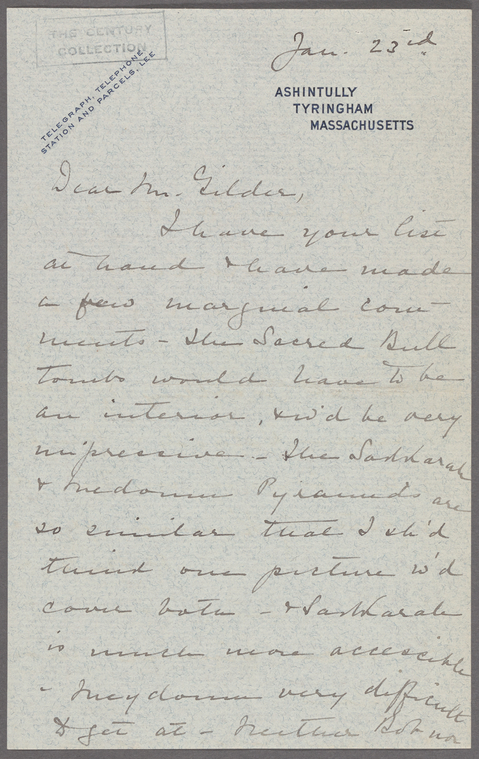 THE CENTURY
COLLECTION
TELEGRAPH, TELEPHONE,
STATION AND PARCELS, LEE
Jan. 23rd
ASHINTULLY
TYRINGHAM
MASSACHUSETTS
Dear Mr. Gilder,
I have your list
at hand & have made
a few marginal com-
ments - The Sacred Bull
tombs would have to be
an interior, & w'd be very
impressive - The Sakkarah
& Medoum Pyramids are
so similar that I sh'd
think one picture w'd
cover both - & Sakkarah
is much more accessible
- Meydoum very difficult
to get at - Neither Bob nor